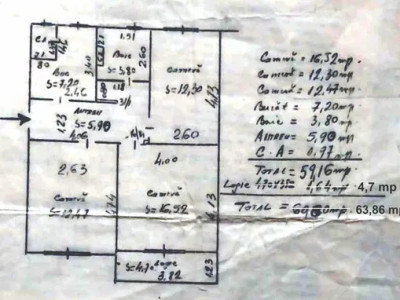 1.51
CA
80
Buc
S=7,20
2.46
3,40
Baie
S=3,80
2.60
Cameră
S=12,30
4,73
1,23
Antreu
S=5,90
2,60
4,00
2,63
Cameră
S=12,47
4,74
Cameră
S=16,52
4,13
S=4,70
3,82
1,23
Cameră = 16,52 mp
Cameră = 12,30 mp
Cameră = 12,47 mp
Bucăt = 7,20 mp
Baie = 3,80 mp
Antreu = 5,90 mp
C.A = 0,97 mp
TOTAL = 59,16 mp
Logie mp 4,7 mp
TOTAL = mp 63,86 mp